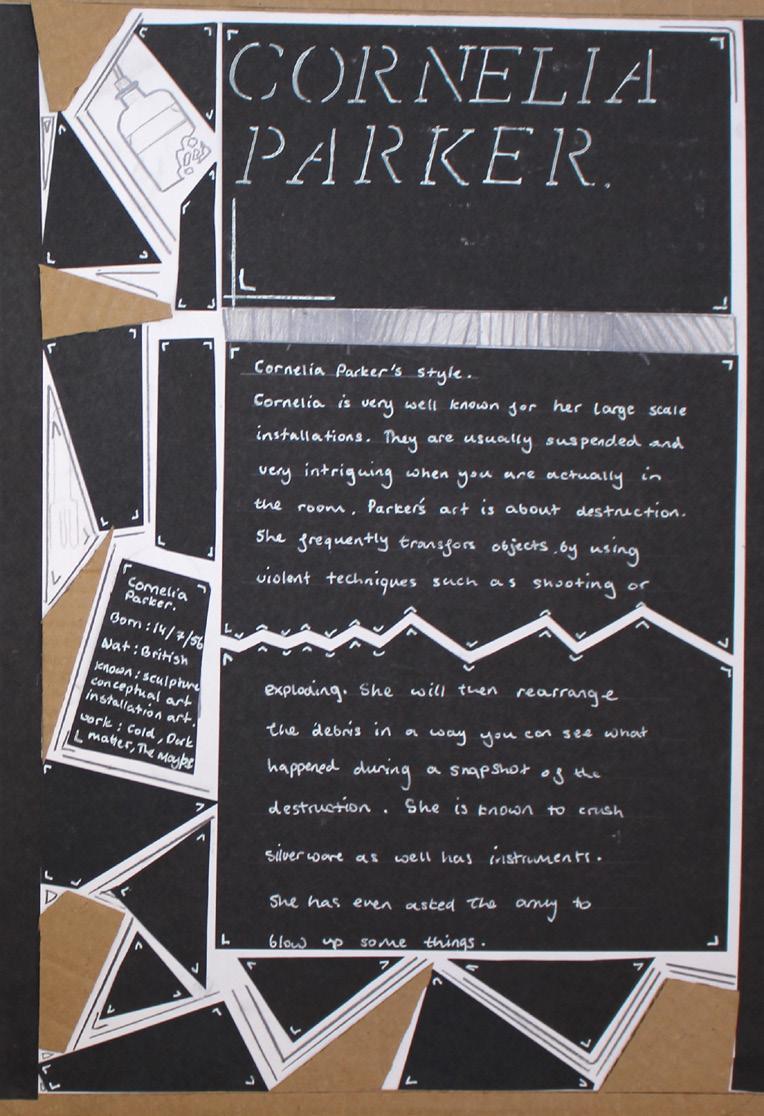 CORNELIA
PARKER.
Cornelia Parker's style.
Cornelia is very well known for her large scale
installations. They are usually suspended and
very intriguing when you are actually in
the room. Parker's art is about destruction.
She frequently transfors objects by using
violent techniques such as shooting or
exploding. She will then rearrange
the debris in a way you can see what
happened during a snapshot of the
destruction. She is known to crush
silverware as well has instruments.
She has even asked the army to
blow up some things.
Cornelia
Parker.
Born: 14/7/56
Nat: British
known: sculpture
conceptual art
installation art.
work: Cold, Dark
matter, The Maybe